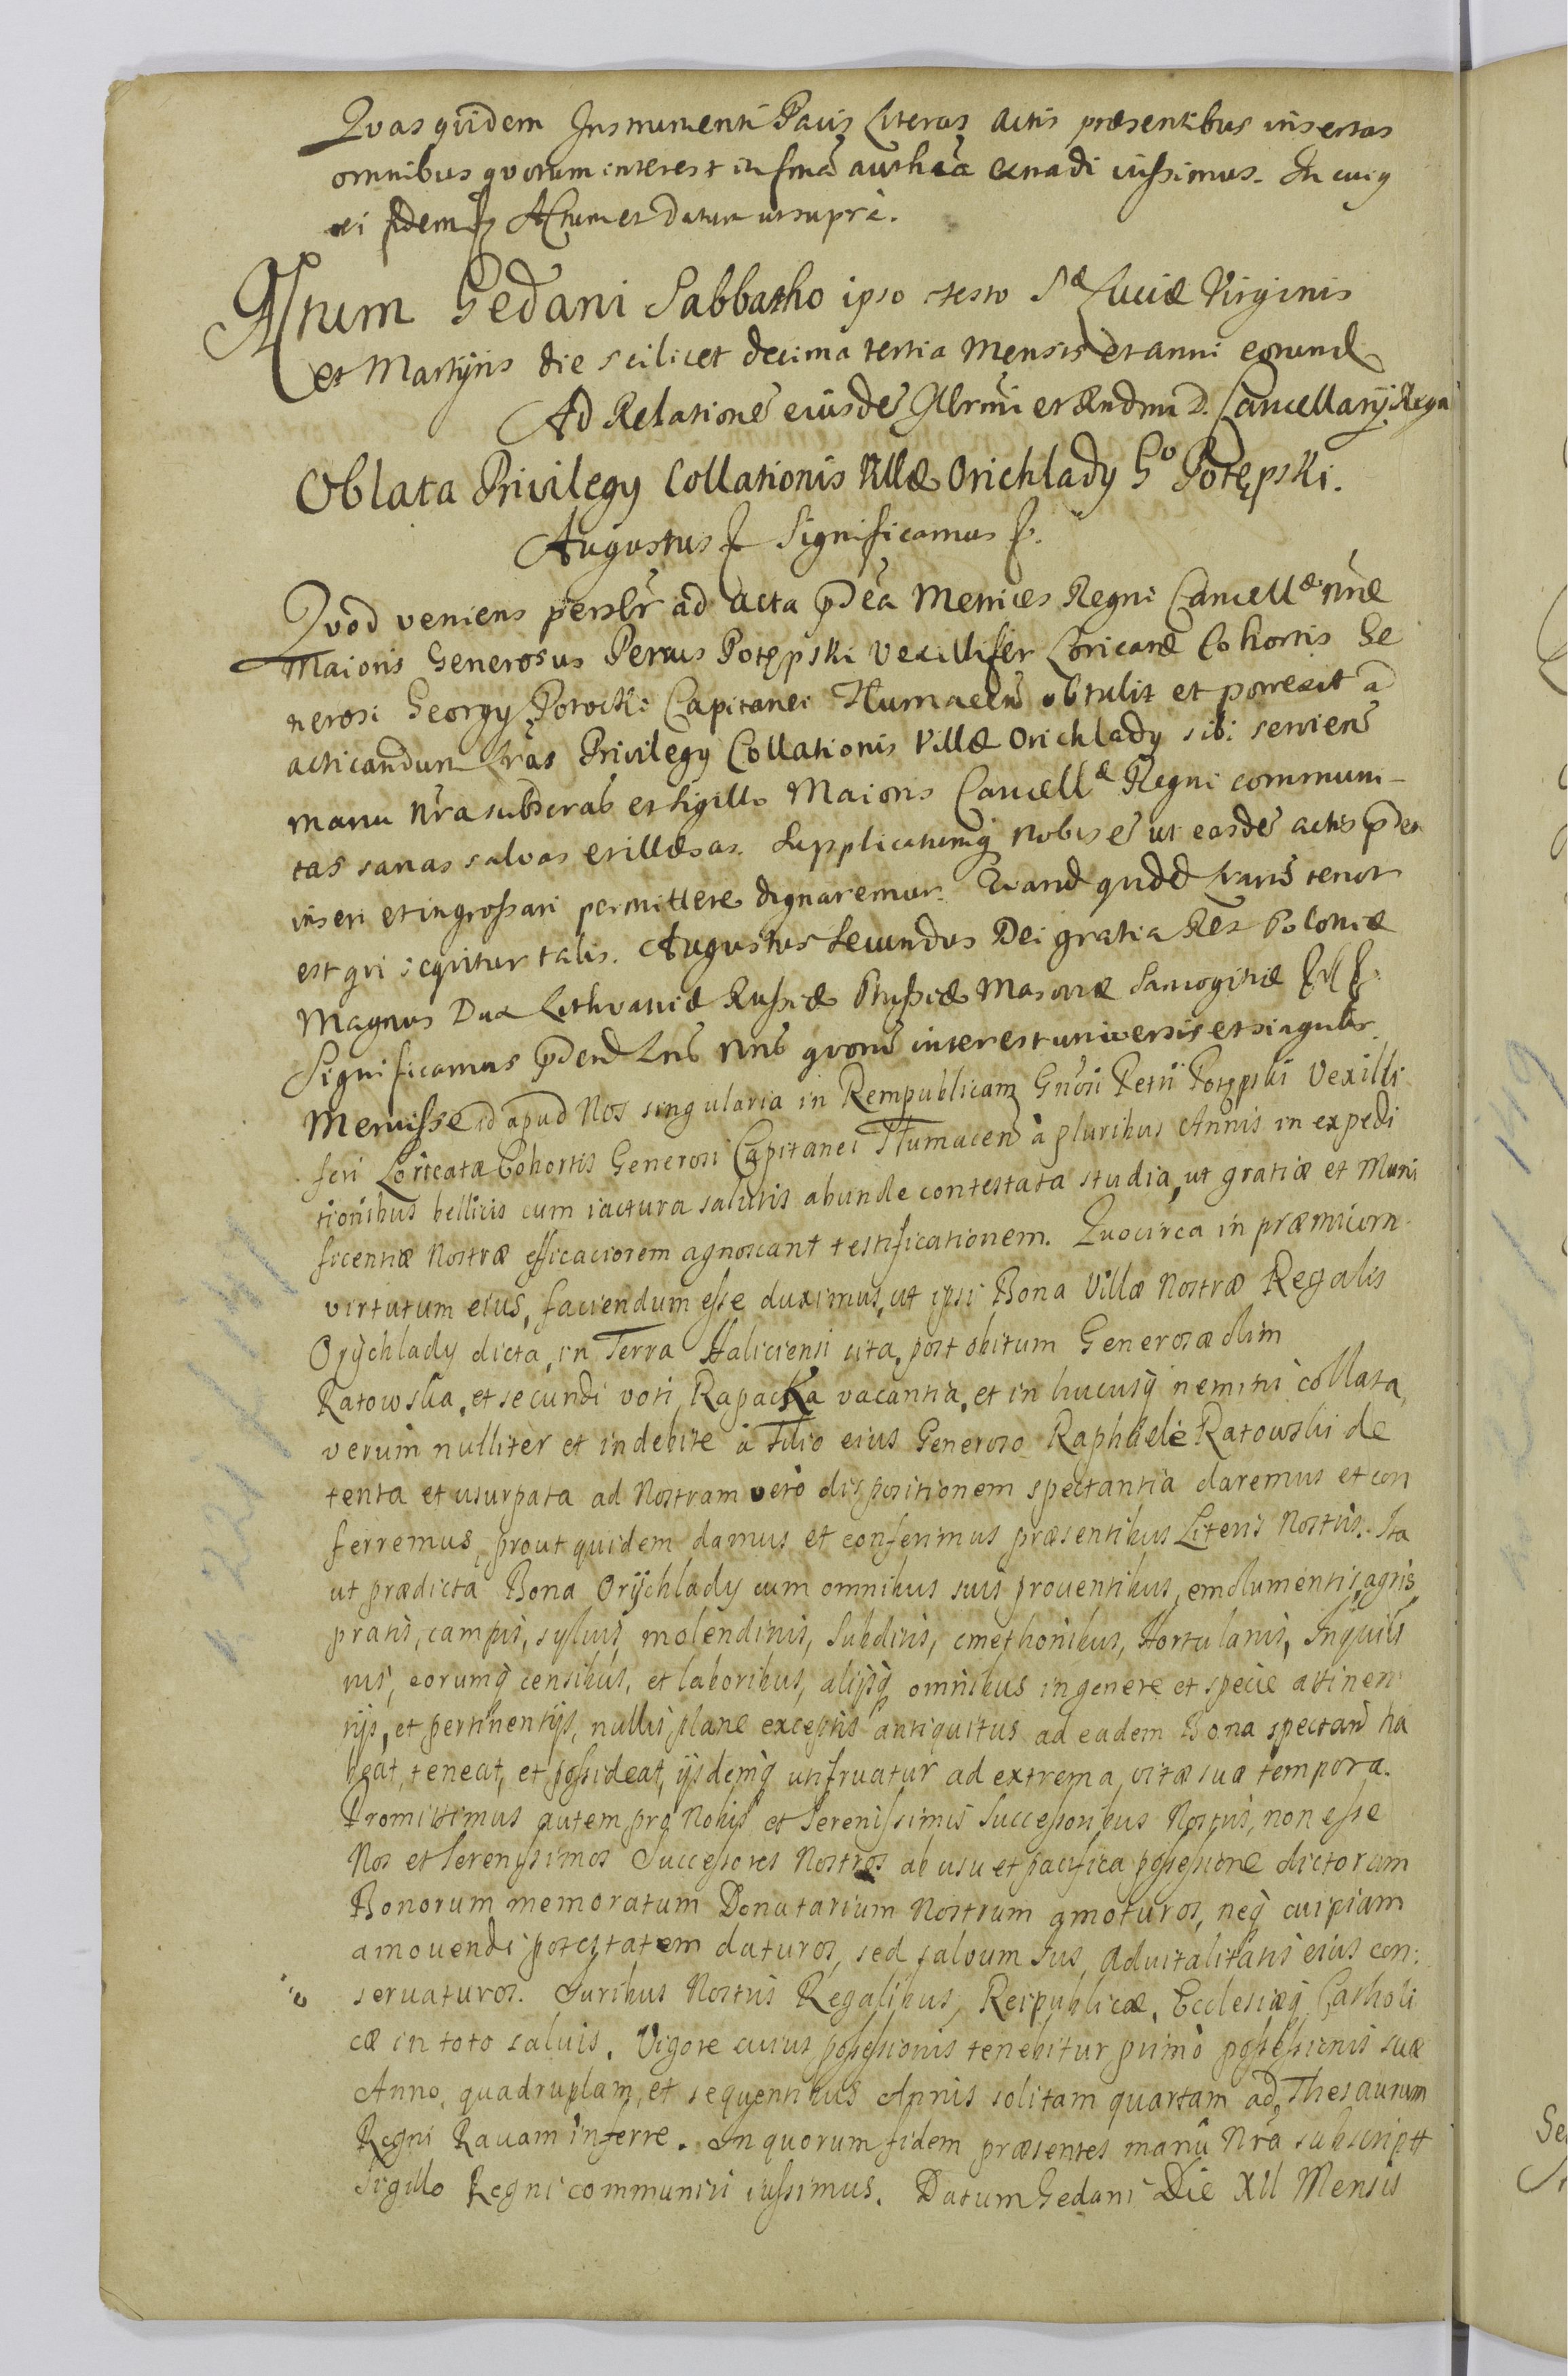 Quas quidem Instrumenti Pacis Literas Actis præsentibus insertas
omnibus quorum interest in forma authca extradi iussimus. In cuiq
rei fidem Actum et Datum ut supra.
Actum Gedani Sabbatho ipso festo Sæ Luciæ Virginis
et Martyris die scilicet decima tertia Mensis et anni eorund
Ad Relatione eiusde Illrmi et Rndmi D. Cancellarij Regni
Oblata Privilegy Collationis Villæ Orichlady Go Potępski.
Augustus Significamus
Quod veniens persLr ad Acta pdea Metrices Regni Cancellæ nræ
Maioris Generosus Petrus Potępski Vexillifer Loricatæ Cohortis Ge
nerosi Georgy Potocki Capitanei Tłumacen obtulit et porrexit ad
acticandum Lras Privilegy Collationis Villæ Orichlady sibi servien
manu nra subscrab et Sigillo Maioris Cancellæ Regni communi-
tas sanas salvas et illæsas. Supplicatumq nobis e ut easde actis pden
inseri et ingrossari permittere dignaremur. Quard quidd Lrarū tenor
est qui sequitur talis. Augustus Secundus Dei gratia Rex Poloniæ
Magnus Dux Lithvaniæ Russiæ Prussiæ Masoviæ Samogitiæ
Significamus pdend Lrib nris quorū interest universis et singulis.
Meruisse id apud Nos singularia in Rempublicam Gnosi Petri Potępski Vexilli
feri Loricatæ Cohortis Generosi Capitanei Tłumacen à pluribus Annis in expedi
tionibus bellicis cum iactura salutis abunde contestata studia, ut gratiæ et Muni
ficentiæ Nostræ efficaciorem agnoscant testificationem. Quocirca in præmium
virtutum eius, faciendum esse duximus, ut ipsi Bona Villæ Nostræ Regalis
Orÿchlady dicta, in Terra Haliciensi sita, post obitum Generosæ olim
Ratowska, et secundi voti Rapacka vacantia, et in hucusq nemini collata,
verum nulliter et indebite à Filio eius Generoso Raphaele Ratowski de
tenta et usurpata ad Nostram verò dispositionem spectantia daremus et con
ferremus, prout quidem damus et conferimus præsentibus Literis Nostris. Ita
ut prædicta Bona Orÿchlady cum omnibus suis prouentibus, emolumentis, agris,
pratis, campis, syluis, molendinis, Subditis, cmethonibus, Hortulanis, Inquili
nis, eorumq censibus, et laboribus, alijsq omnibus in genere et specie attinen
tijs, et pertinentijs, nullis plane exceptis antiquitus ad eadem Bona spectan ha
beat, teneat, et possideat, ijsdemq utifruatur ad extrema vitæ suæ tempora.
Promittimus autem pro Nobis et Serenissimis Successoribus Nostris, non esse
Nos et Serenissimos Successores Nostros ab usu et pacifica possessione dictorum
Bonorum memoratum Donatarium Nostrum amoturos, neq cuipiam
amouendi potestatem daturos, sed saluum Ius Aduitalitatis eius con:
seruaturos. Iuribus Nostris Regalibus, Reipublicæ, Ecclesiæq Catholi
cæ in toto saluis. Vigore cuius possessionis tenebitur primò possessionis suæ
Anno, quadruplam, et sequentibus Annis solitam quartam ad Thesaurum
Regni Rauam inferre. In quorum fidem præsentes manū Nrâ subscriptt
Sigillo Regni communiri iussimus. Datum Gedani Die XII Mensis